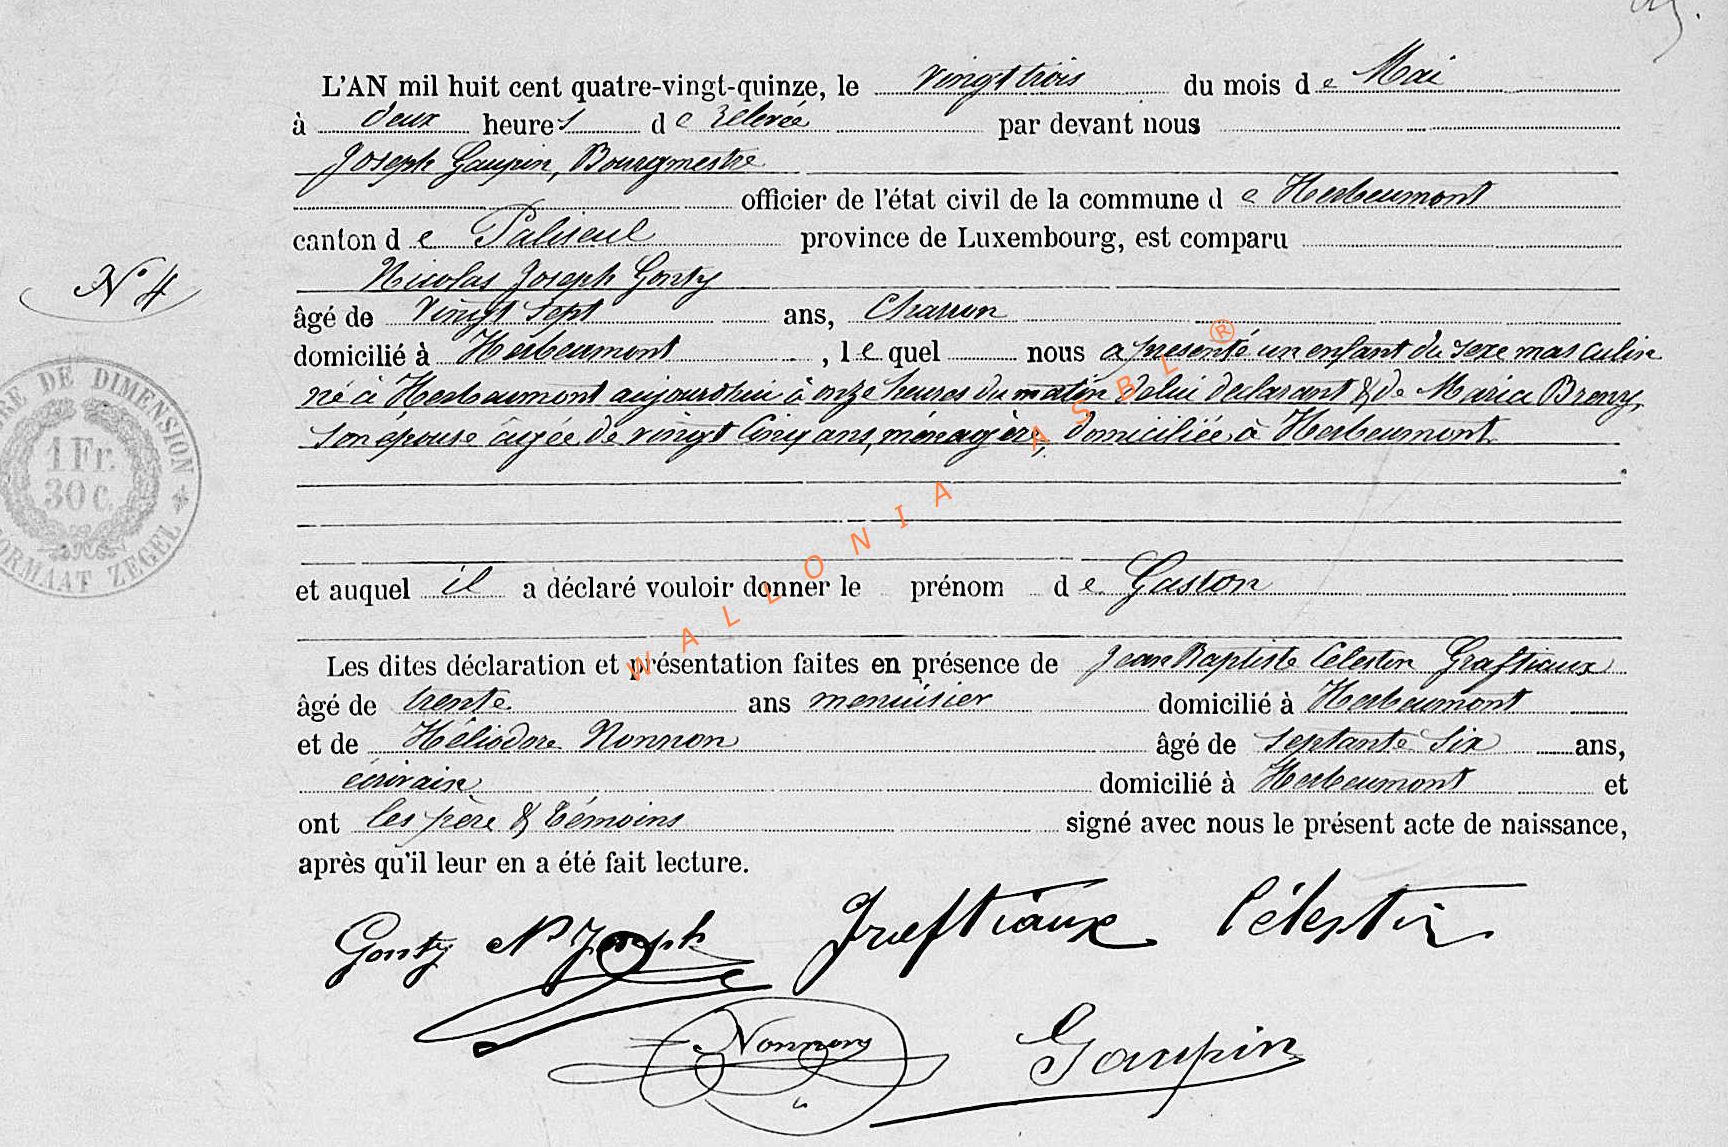 L'AN mil huit cent quatre-vingt-quinze, le vingt trois du mois de Mai
à deux heures de relevée par devant nous
Joseph Gaupin, Bourgmestre
officier de l'état civil de la commune de Herbeumont
canton de Paliseul province de Luxembourg, est comparu
Nicolas Joseph Gonty
N° 4
âgé de vingt sept ans, Charron
domicilié à Herbeumont, lequel nous a présenté un enfant du sexe masculin
né à Herbeumont aujourd'hui à onze heures du matin de lui déclarant & de Maria Breny,
son épouse âgée de vingt cinq ans, ménagère, domiciliée à Herbeumont
DE DIMENSION
1 Fr.
30 C.
FORMAAT ZEGEL
et auquel il a déclaré vouloir donner le prénom de Gaston
Les dites déclaration et présentation faites en présence de Jean Baptiste Célestin Graftiaux
âgé de trente ans menuisier domicilié à Herbeumont
et de Héliodore Nonnon âgé de septante six ans,
écrivain domicilié à Herbeumont et
ont les père & témoins signé avec nous le présent acte de naissance,
après qu'il leur en a été fait lecture.
Gonty N Joseph Graftiaux Célestin
Nonnon Gaupin
WALLONIA ASBL ®